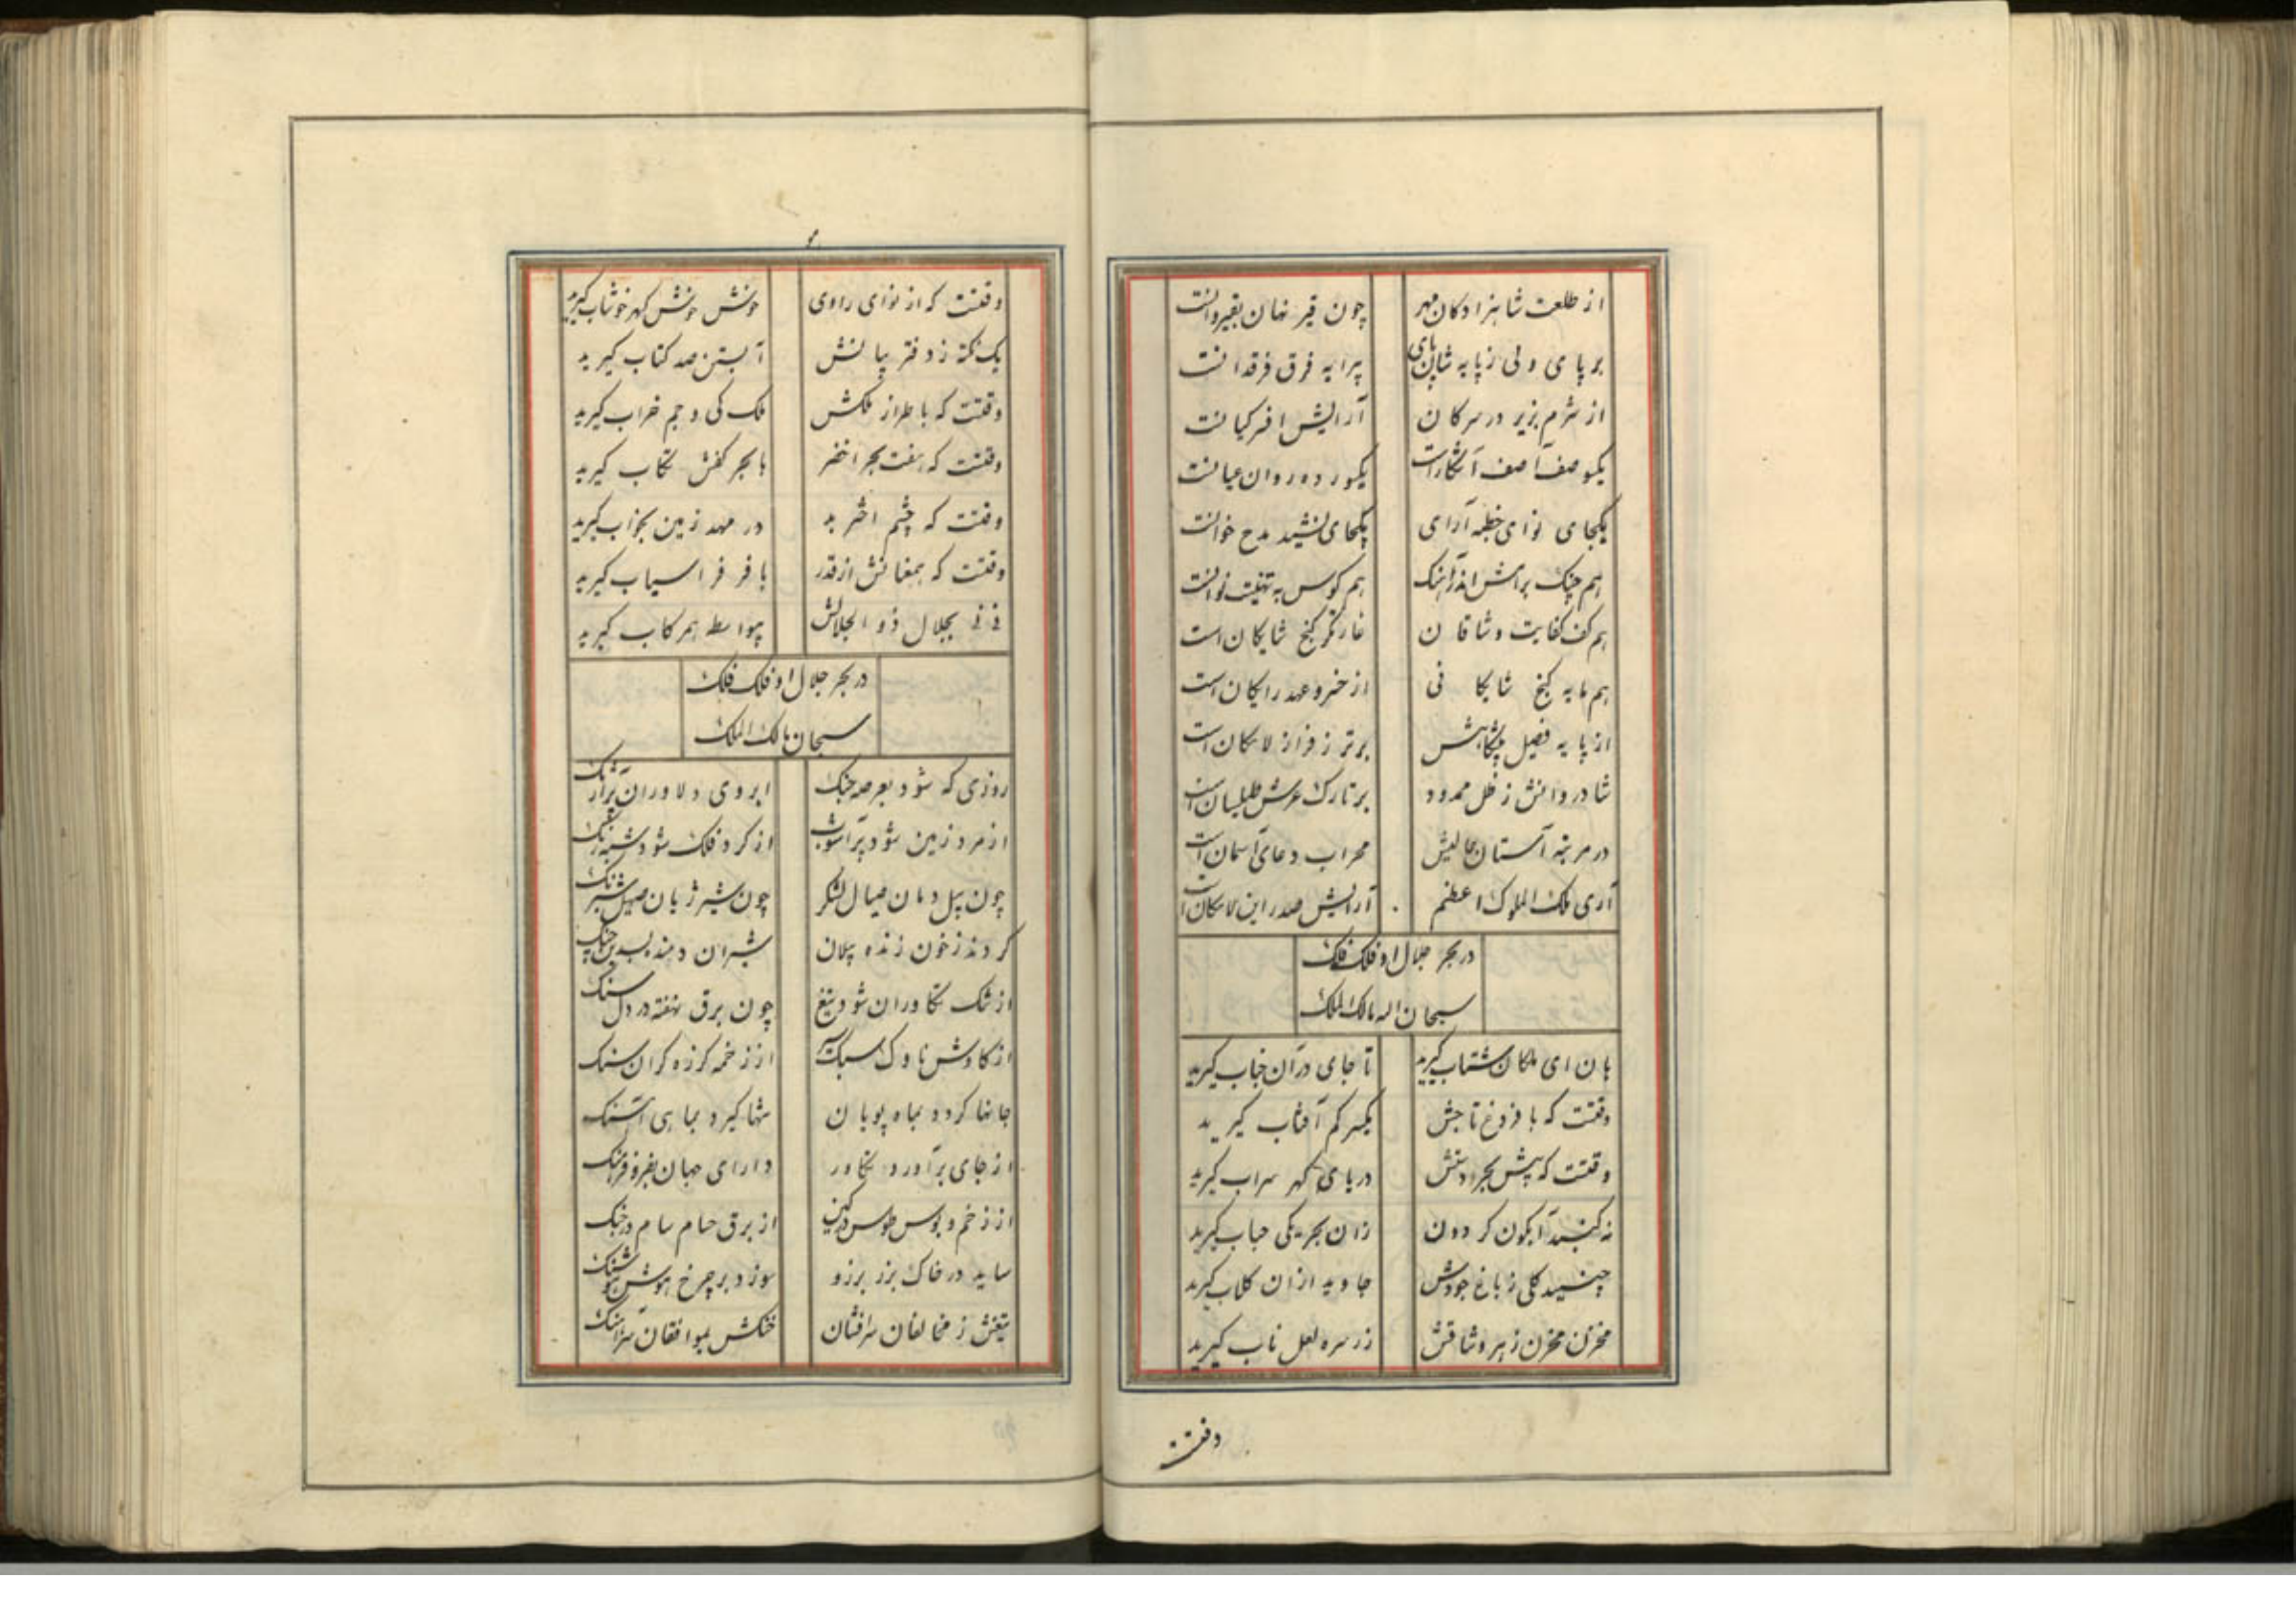 از طلعت شاهزادکان مهر چون قیر نهان بقیروانست
بر پای ولی ز پایه شان پای پیرایه فرق فرقدانست
از شرم بزیر در سرکان آرایش افسر کیانست
یکسو صف آصف آشکار است یکسو رده روان عیانست
یکجای نوای خطبه آرای یکجای نشید مدح خوانست
هم چنک برامش اندر آهنک هم کوس به تهنیت نوانست
هم کف کفایت وشاقان غارتکر کنج شایکان است
هم مایه کنج شایکانی از خسرو عهد رایکان است
از پایه فصیل پیشکاهش برتر ز فراز لامکان است
شادروانش ز ظل ممدود بر تارک عرش طیلسان است
در مرتبه آستان عالیش محراب دعای آسمان است
آری ملک الملوک اعظم آرایش صدر این لامکان است
در بحر جلال او فلک فلک
سبحان اله مالک الملک
هان ای ملکان شتاب کیرید تا جای در آن جناب کیرید
وقتست که با فروغ تاجش یکسر کم آفتاب کیرید
وقتست که پیش بحر دستش دریای کهر سراب کیرید
نه کنبد آبکون کردون زان بحر یکی حباب کیرید
چنید کلی ز باغ جودش جاوید ازان کلاب کیرید
مخزن مخزن ز بهر وشاقش زر سره لعل ناب کیرید
وقتست
وقتست که از نوای راوی خوش خوش کهر خوشاب کیرید
یک نکته ز دفتر بیانش آبستن صد کتاب کیرید
وقتست که با طراز ملکش ملک کی و جم خراب کیرید
وقتست که هفت بحر اخضر با بحر کفش سحاب کیرید
وقتست که چشم اختر بد در مهد زمین بخواب کیرید
وقتست که همعنانش از قدر با فر فراسیاب کیرید
نی نی بجلال ذوالجلالش بیواسطه همرکاب کیرید
در بحر جلال او فلک فلک
سبحان مالک الملک
روزی که شود بعرصه جنک ابروی دلاوران پر آژنک
از مرد زمین شود پر آشوب از کرد فلک شود شبه رنک
چون پیل دمان صیال لشکر چون شیر ژیان صهیل شبرنک
کردند ز خون زنده پیلان شیران دمنده بسدین چنک
از شک تکاوران شود تیغ چون برق نهفته در دل سنک
از کاوش ناوک سبک سیر از زخمه کرزه کران سنک
جانها کردد بماه پویان تنها کیرد بماهی آهنک
از جای برآورد تکاور دارای جهان بفر و فرهنک
از زخم دبوس طوس در کین از برق حسام سام در جنک
ساید در خاک برز برزو سوزد بر چرخ هوش هوشنک
تیغش ز مخالفان سرافشان خنکش بموافقان سرآهنک